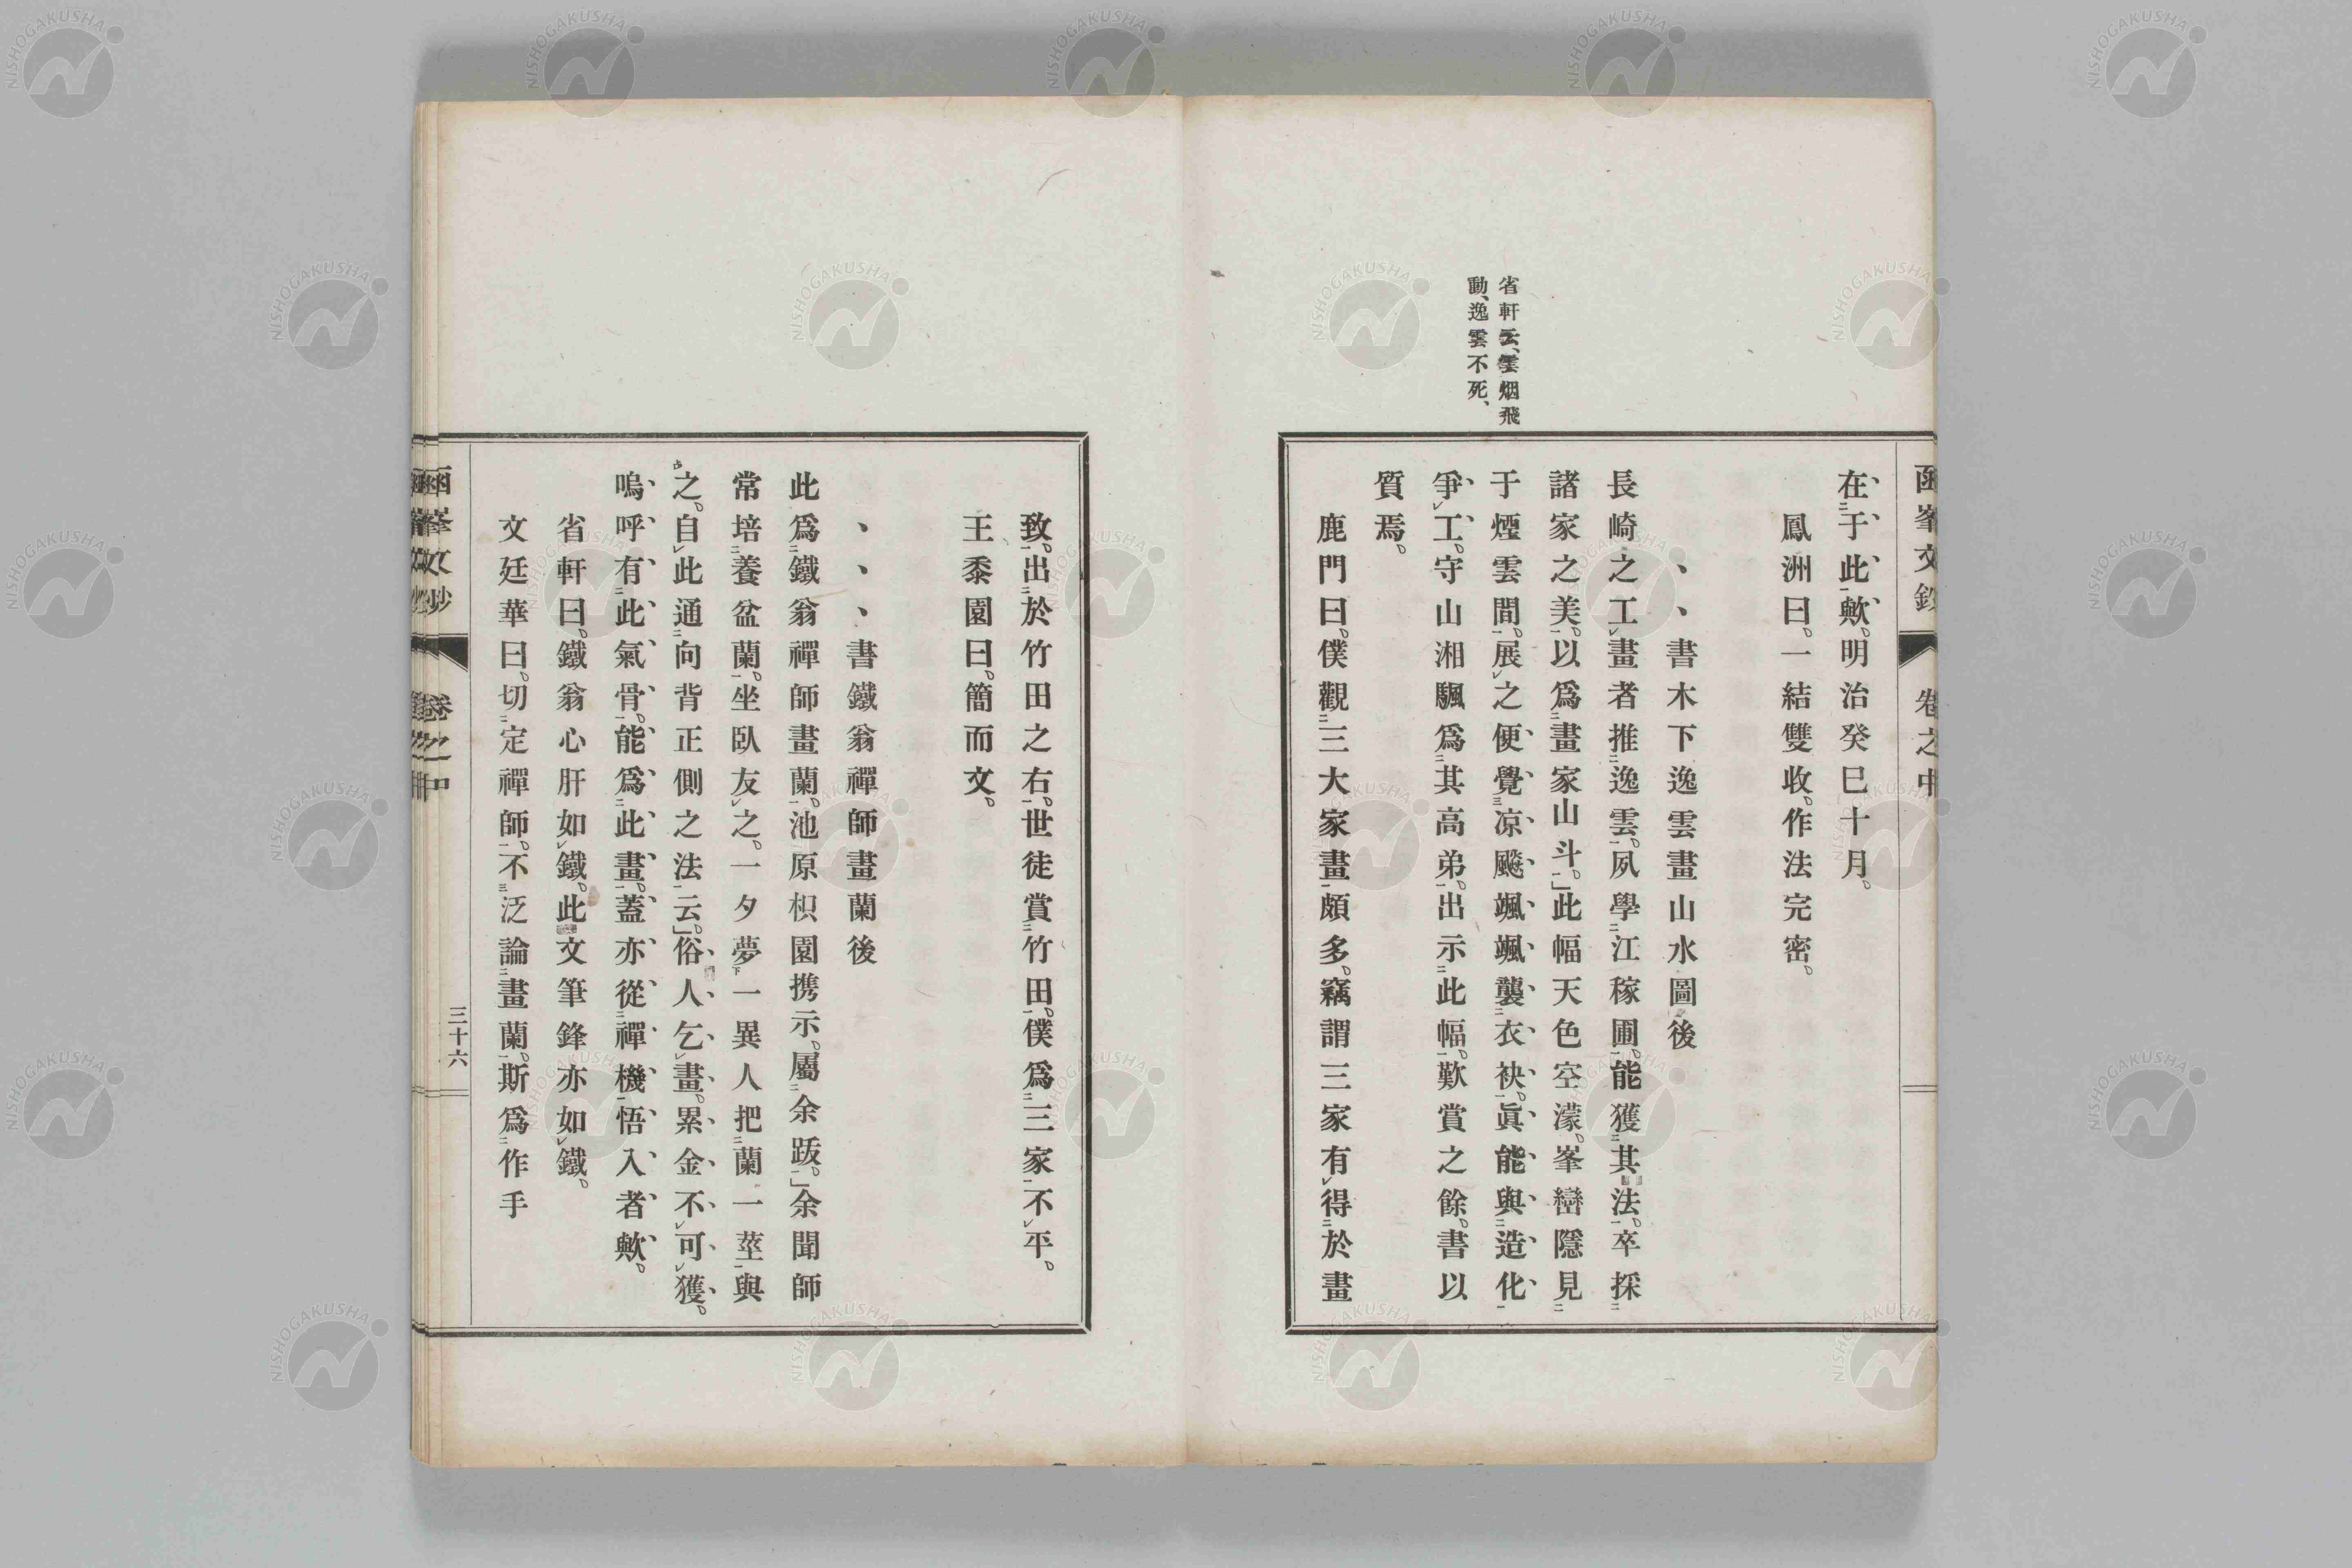 函峯文鈔 卷之中
在于此歟。明治癸巳十月。
鳳洲曰。一結雙收。作法完密。
、、書木下逸雲畫山水圖後
長崎之工畫者推逸雲。夙學江稼圃。能獲其法。卒採
諸家之美。以爲畫家山斗。」此幅天色空濛。峯巒隱見
于煙雲間。展之便覺凉飈颯颯襲衣袂。眞能與造化
爭工。守山湘颿爲其高弟。出示此幅。歎賞之餘。書以
質焉。
省軒云、雲烟飛
動、逸雲不死、
鹿門曰。僕觀三大家畫頗多。竊謂三家有得於畫
致。出於竹田之右。世徒賞竹田。僕爲三家不平。
王黍園曰。簡而文。
、、、書鐵翁禪師畫蘭後
此爲鐵翁禪師畫蘭。池原枳園携示。屬余跋。」余聞師
常培養盆蘭。坐臥友之。一夕夢一異人把蘭一莖與
之。自此通向背正側之法云。」俗人乞畫。累金不可獲。
嗚呼有此氣骨。能爲此畫。蓋亦從禪機悟入者歟。
省軒曰。鐵翁心肝如鐵。此文筆鋒亦如鐵。
文廷華曰。切定禪師。不泛論畫蘭。斯爲作手
三十六